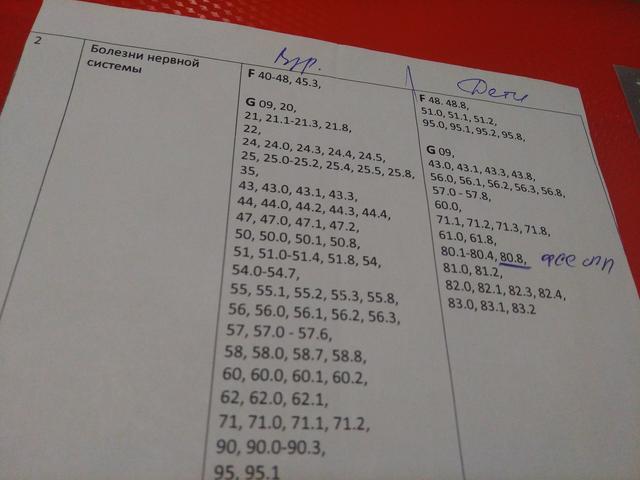 Взр.
Дети
2
Болезни нервной
системы
F 40-48, 45.3,
G 09, 20,
21, 21.1-21.3, 21.8,
22,
24, 24.0, 24.3, 24.4, 24.5,
25, 25.0-25.2, 25.4, 25.5, 25.8,
35,
43, 43.0, 43.1, 43.3,
44, 44.0, 44.2, 44.3, 44.4,
47, 47.0, 47.1, 47.2,
50, 50.0, 50.1, 50.8,
51, 51.0-51.4, 51.8, 54,
54.0-54.7,
55, 55.1, 55.2, 55.3, 55.8,
56, 56.0, 56.1, 56.2, 56.3,
57, 57.0 - 57.6,
58, 58.0, 58.7, 58.8,
60, 60.0, 60.1, 60.2,
62, 62.0, 62.1,
71, 71.0, 71.1, 71.2,
90, 90.0-90.3,
95, 95.1
F 48. 48.8,
51.0, 51.1, 51.2,
95.0, 95.1, 95.2, 95.8,
G 09,
43.0, 43.1, 43.3, 43.8,
56.0, 56.1, 56.2, 56.3, 56.8,
57.0 - 57.8,
60.0,
71.1, 71.2, 71.3, 71.8,
61.0, 61.8,
80.1-80.4, 80.8,
81.0, 81.2,
82.0, 82.1, 82.3, 82.4,
83.0, 83.1, 83.2